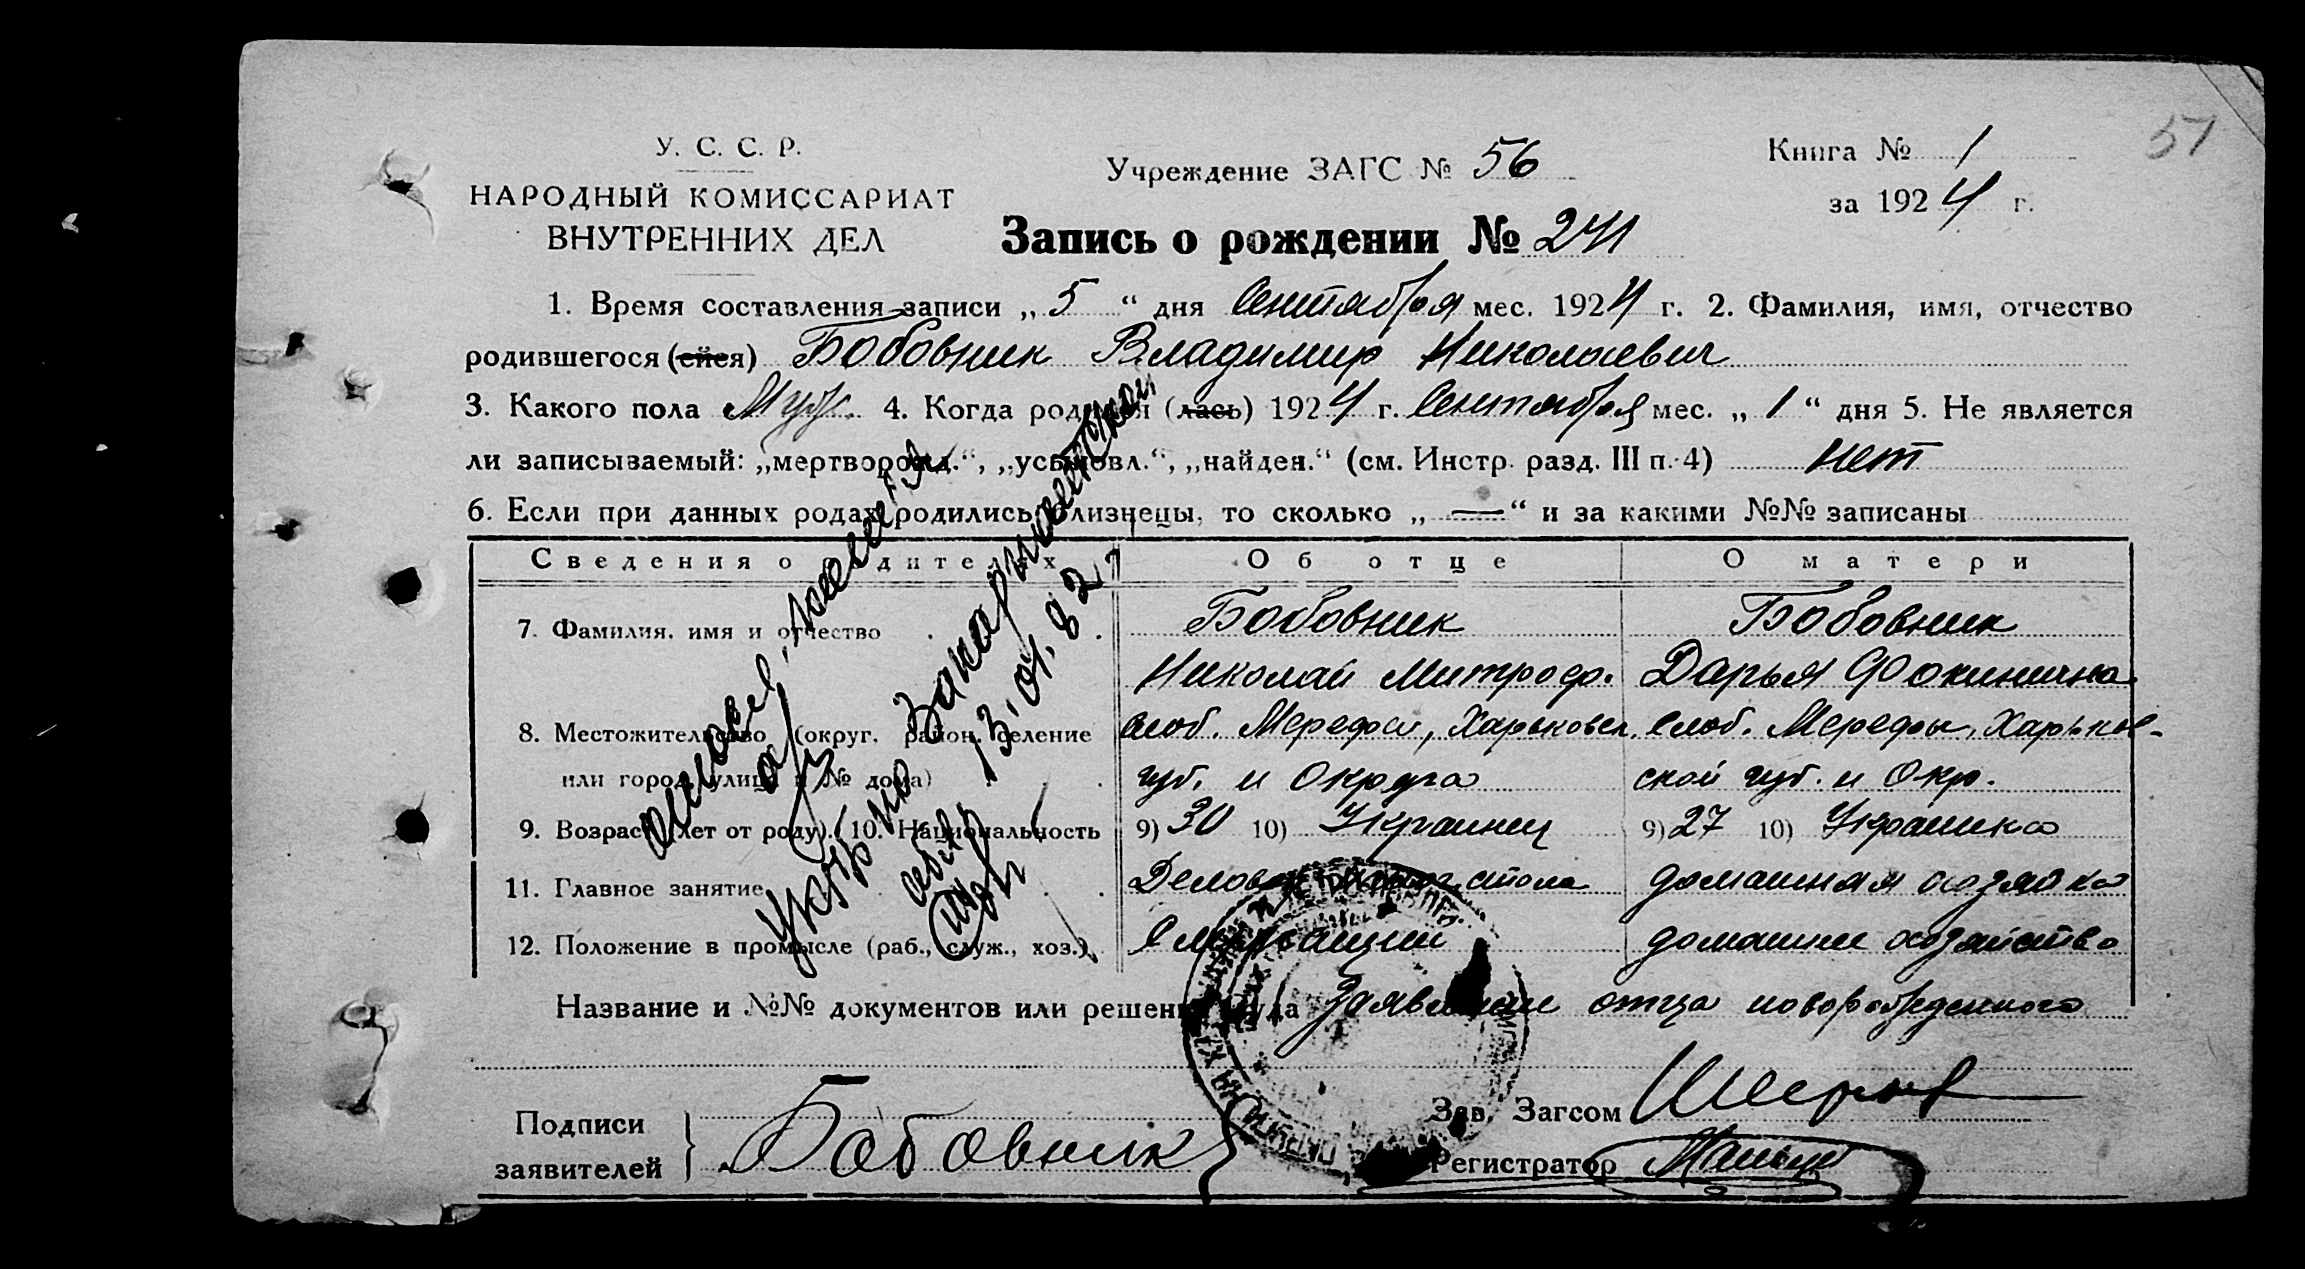 51
У. С. С. Р.
НАРОДНЫЙ КОМИССАРИАТ
ВНУТРЕННИХ ДЕЛ
Учреждение ЗАГС № 56
Книга № 1
за 1924 г.
Запись о рождении № 241
1. Время составления записи „ 5 “ дня Сентября мес. 1924 г. 2. Фамилия, имя, отчество
родившегося (ейся) Бобовник Владимир Николаевич
3. Какого пола Муж. 4. Когда родился (лась) 1924 г. Сентября мес. „ 1 “ дня 5. Не является
ли записываемый: „мертворожд.“, „усыновл.“, „найден.“ (см. Инстр. разд. III п. 4) нет
6. Если при данных родах родились близнецы, то сколько „ — “ и за какими №№ записаны
Сведения о родителях Об отце О матери
7. Фамилия, имя и отчество Бобовник Бобовник
Николай Митроф. Дарья Фокинична
8. Местожительство (округ, район, селение Слоб. Мерефа, Харьковск. Слоб. Мерефы, Харьков-
или город, улица и № дома) губ. и Округа ской губ. и Окр.
9. Возраст (лет от роду). 10. Национальность 9) 30 10) Украинец 9) 27 10) Украинка
11. Главное занятие Делов стола домашняя хозяйка
12. Положение в промысле (раб., служ., хоз.) домашнее хозяйство
Название и №№ документов или решения суда Заявление отца новорожденного
Подписи
заявителей } Бобовник
Зав. Загсом
Регистратор